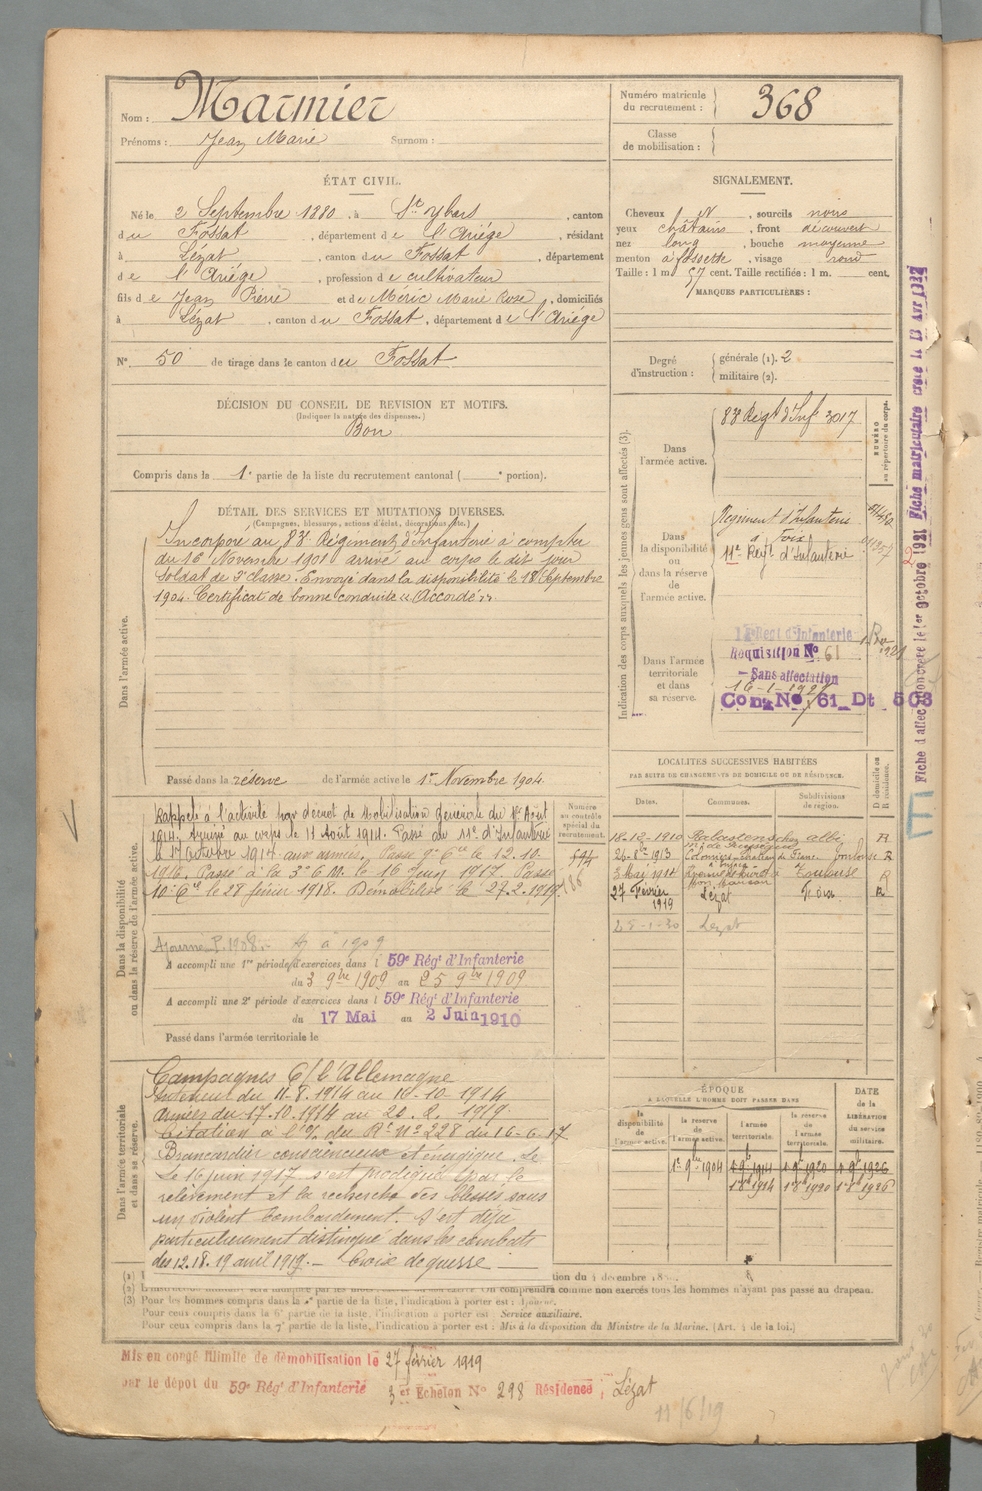 Nom : Marmier
Prénoms : Jean Marie Surnom :
Numéro matricule du recrutement : 368
Classe de mobilisation :
ÉTAT CIVIL.
Né le 2 Septembre 1880, à St ybars, canton
du Fossat, département de l'Ariége, résidant
à Lézat, canton du Fossat, département
de l'Ariége, profession de cultivateur
fils de Jean Pierre et de Méric Marie Rose, domiciliés
à Lézat, canton du Fossat, département de l'Ariége
No 50 de tirage dans le canton du Fossat
DÉCISION DU CONSEIL DE REVISION ET MOTIFS.
(Indiquer la nature des dispenses.)
Bon
Compris dans la 1e partie de la liste du recrutement cantonal ( e portion).
SIGNALEMENT.
Cheveux N, sourcils noirs
yeux châtains, front découvert
nez long, bouche moyenne
menton à fossette, visage rond
Taille : 1 m 57 cent. Taille rectifiée : 1 m. cent.
MARQUES PARTICULIÈRES :
Degré d'instruction : générale (1). 2
militaire (2).
DÉTAIL DES SERVICES ET MUTATIONS DIVERSES.
(Campagnes, blessures, actions d'éclat, décorations, etc.)
Dans l'armée active.
Incorporé au 83e Régiment d'Infanterie à compter
du 16 Novembre 1901 arrivé au corps le dit jour
Soldat de 2e classe. Envoyé dans la disponibilité le 18 Septembre
1904. Certificat de bonne conduite "Accordé".
Passé dans la réserve de l'armée active le 1er Novembre 1904.
Indication des corps auxquels les jeunes gens sont affectés (3).
NUMÉRO au répertoire du corps.
Dans l'armée active.
83e Regt d'Infie 3017
Dans la disponibilité ou dans la réserve de l'armée active.
Regiment d'Infanterie
à Foix
11e Regt d'Infanterie
Dans l'armée territoriale et dans sa réserve.
Regt d'Infanterie
Requisition No 61
Sans affectation
16-1-192
Con No 61 Dt 503
Fiche d'affectation créée le 1er octobre 1921 Fiche matriculaire créée le 13 Avr 192
Dans la disponibilité ou dans la réserve de l'armée active.
Numéro au contrôle spécial du recrutement.
594
186
Rappelé à l'activité par décret de Mobilisation Générale du 1er Août
1914. Arrivé au corps le 11 Août 1914. Passé au 11e d'Infanterie
le 17 Octobre 1914 aux armées. Passé 9e Cie le 12.10.
1916. Passé à la 3e C.M. le 16 Juin 1917. Passé
10e Cie le 28 février 1918. Démobilisé le 27.2.1919.
Ajourné P. 1908. à 1909
A accompli une 1re période d'exercices dans l 59e Régt d'Infanterie
du 3 9bre 1909 au 25 9bre 1909
A accompli une 2e période d'exercices dans l 59e Régt d'Infanterie
du 17 Mai au 2 Juin 1910
Passé dans l'armée territoriale le
LOCALITÉS SUCCESSIVES HABITÉES
PAR SUITE DE CHANGEMENTS DE DOMICILE OU DE RÉSIDENCE.
Dates. Communes. Subdivisions de région. D domicile ou R résidence.
18-12-1910 Rabastens albi R
26-8-1913 Colomiers Toulouse R
3 Mai 1914 Toulouse R
27 Février 1919 Lézat Foix R
25-1-30 Lezat
Dans l'armée territoriale et dans sa réserve.
Campagnes C/ l'Allemagne
Intérieur du 11-8-1914 au 16-10-1914
Armées du 17.10.1914 au 20.2.1919.
Citation à l'o/ du Rt No 228 du 16-6-17
Brancardier consciencieux et énergique. Le
Le 16 juin 1917 s'est prodigué pour le
relèvement et la recherche des blessés sous
un violent bombardement. S'est déjà
particulièrement distingué dans les combats
des 12.18.19 avril 1917. — Croix de guerre —
ÉPOQUE
A LAQUELLE L'HOMME DOIT PASSER DANS
la disponibilité de l'armée active. la réserve de l'armée active. l'armée territoriale. la réserve de l'armée territoriale. DATE de la LIBÉRATION du service militaire.
1er 9bre 1904 1er 9bre 1914 1er 9bre 1920 1er 9bre 1926
1er 8bre 1914 1er 8bre 1920 1er 8bre 1926
tion du 4 décembre 18
comprendra comme non exercés tous les hommes n'ayant pas passé au drapeau.
(3) Pour les hommes compris dans la partie de la liste, l'indication à porter est :
Pour ceux compris dans la 6e partie de la liste, l'indication à porter est : Service auxiliaire.
Pour ceux compris dans la 7e partie de la liste, l'indication à porter est : Mis à la disposition du Ministre de la Marine. (Art. 4 de la loi.)
Mis en congé illimité de démobilisation le 27 février 1919
par le dépôt du 59e Régt d'Infanterie 3er Echelon No 298 Résidence : Lézat
11/6/19